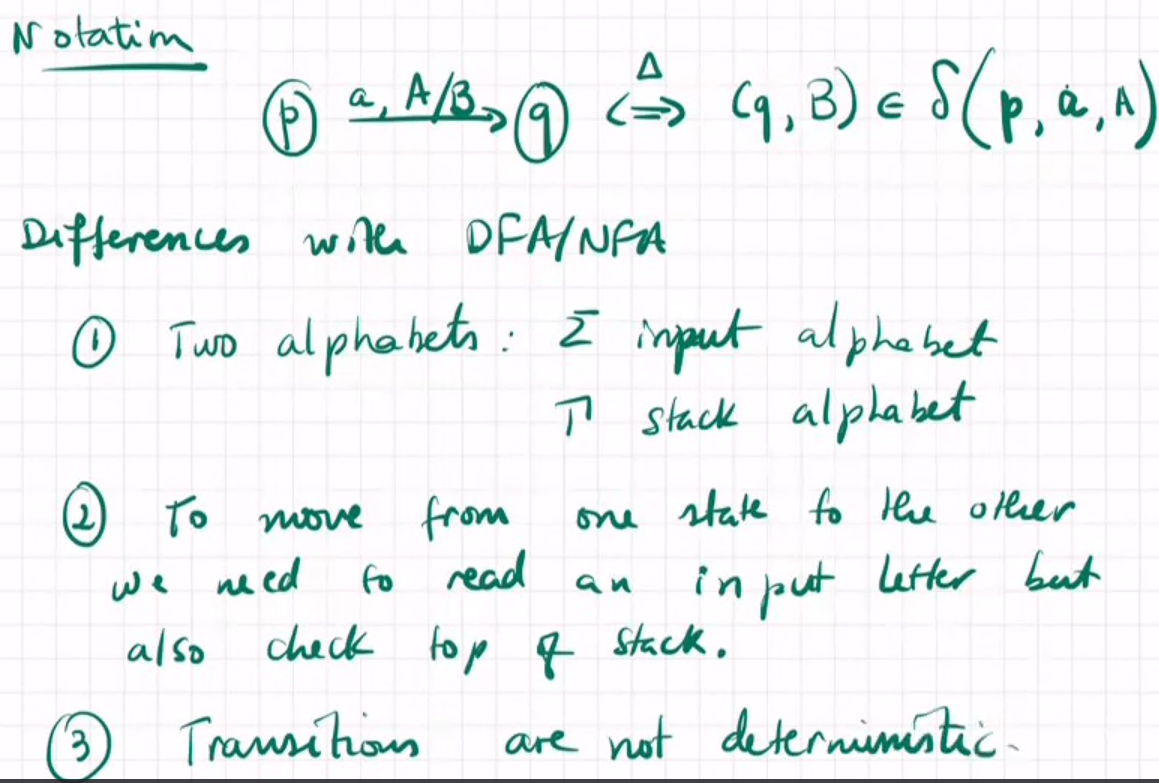 Notation
p a, A/B q ⇔ Δ (q, B) ∈ δ(p, a, A)
Differences with DFA/NFA
① Two alphabets : Σ input alphabet
Γ stack alphabet
② To move from one state to the other
we need to read an input letter but
also check top of stack.
③ Transitions are not deterministic.